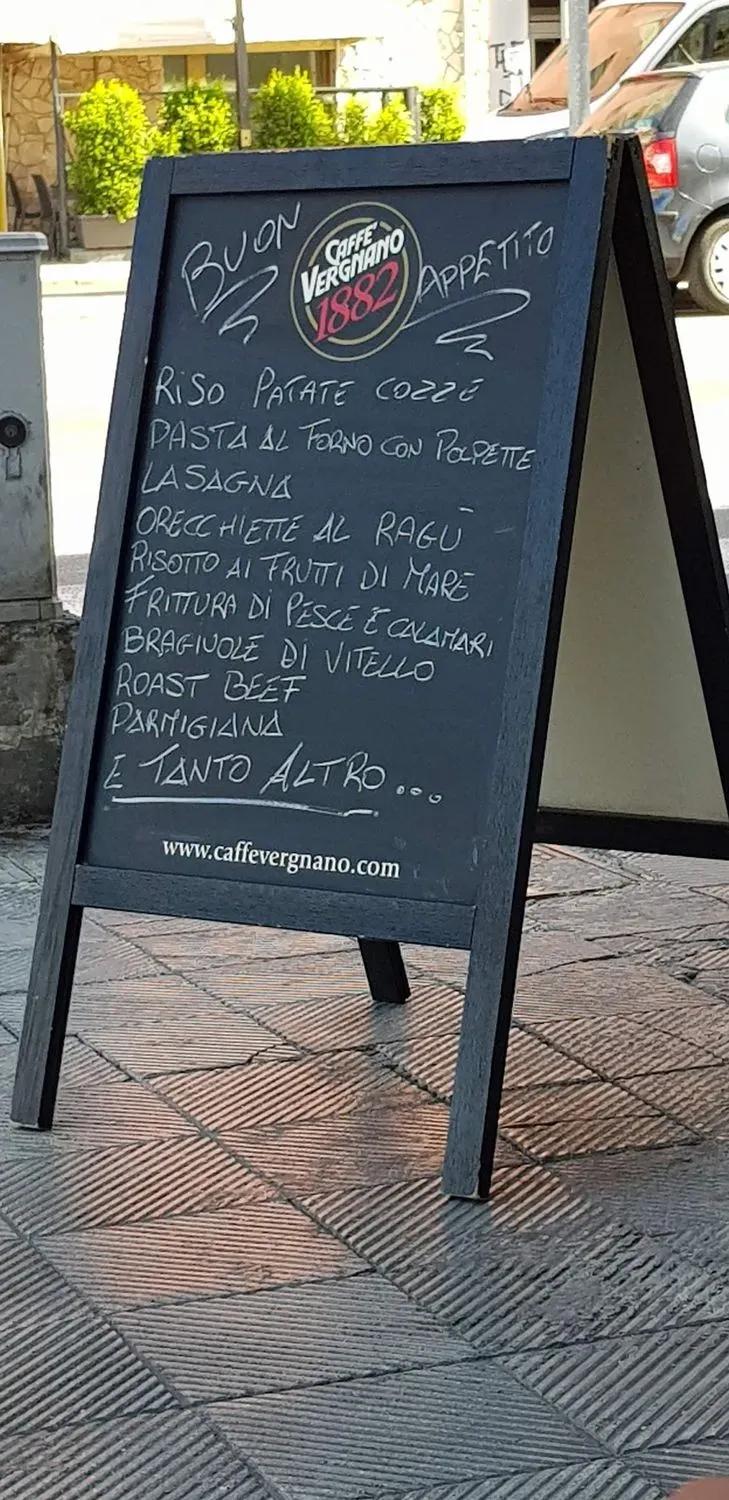 BUON
CAFFÈ
VERGNANO
1882
APPETITO
RISO PATATE COZZE
PASTA AL FORNO CON POLPETTE
LASAGNA
ORECCHIETTE AL RAGÙ
RISOTTO AI FRUTTI DI MARE
FRITTURA DI PESCE E CALAMARI
BRAGIUOLE DI VITELLO
ROAST BEEF
PARMIGIANA
E TANTO ALTRO...
www.caffevergnano.com